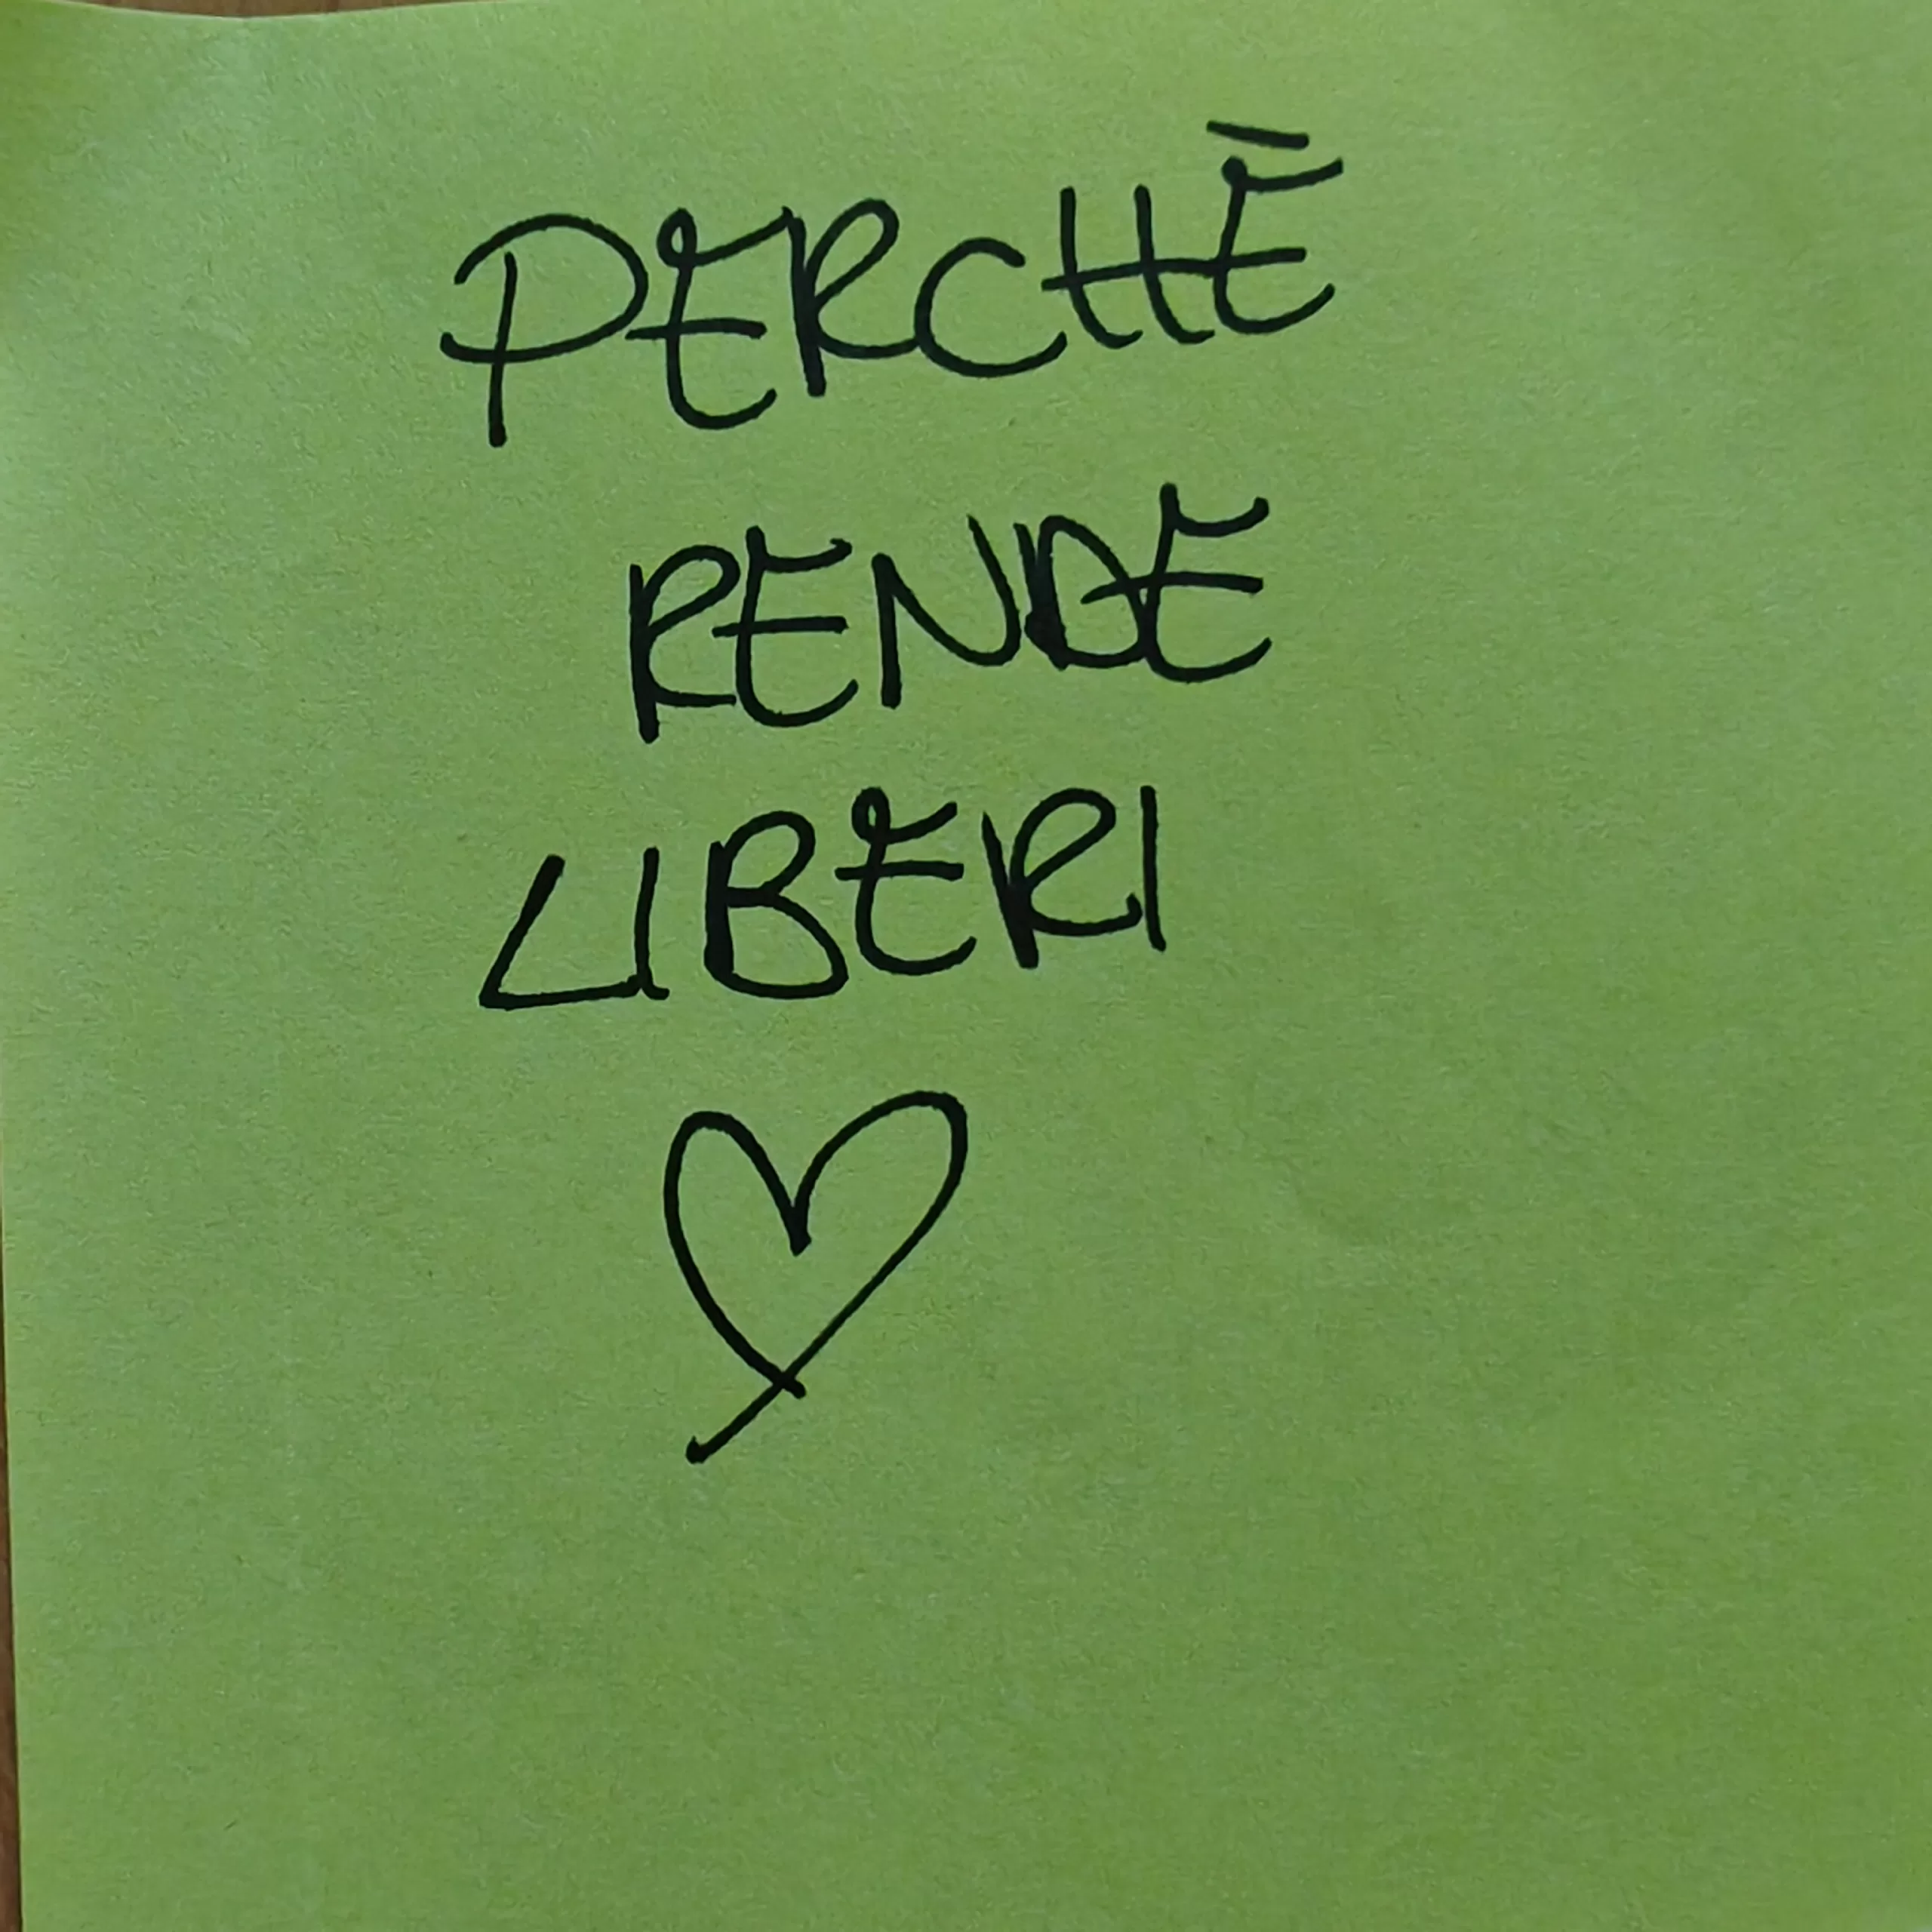 PERCHÈ
RENDE
LIBERI